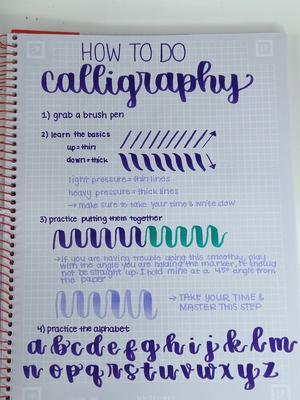 HOW TO DO
calligraphy
1) grab a brush pen
2) learn the basics
up=thin
down=thick
light pressure=thin lines
heavy pressure=thick lines
→ make sure to take your time & write slow
3) practice putting them together
→ if you are having trouble doing this smoothly, play
with the angle you are holding the marker, it should
not be straight up. I hold mine at a 45° angle from
the paper
→ TAKE YOUR TIME &
MASTER THIS STEP
4) practice the alphabet
a b c d e f g h i j k l m
n o p q r s t u v w x y z